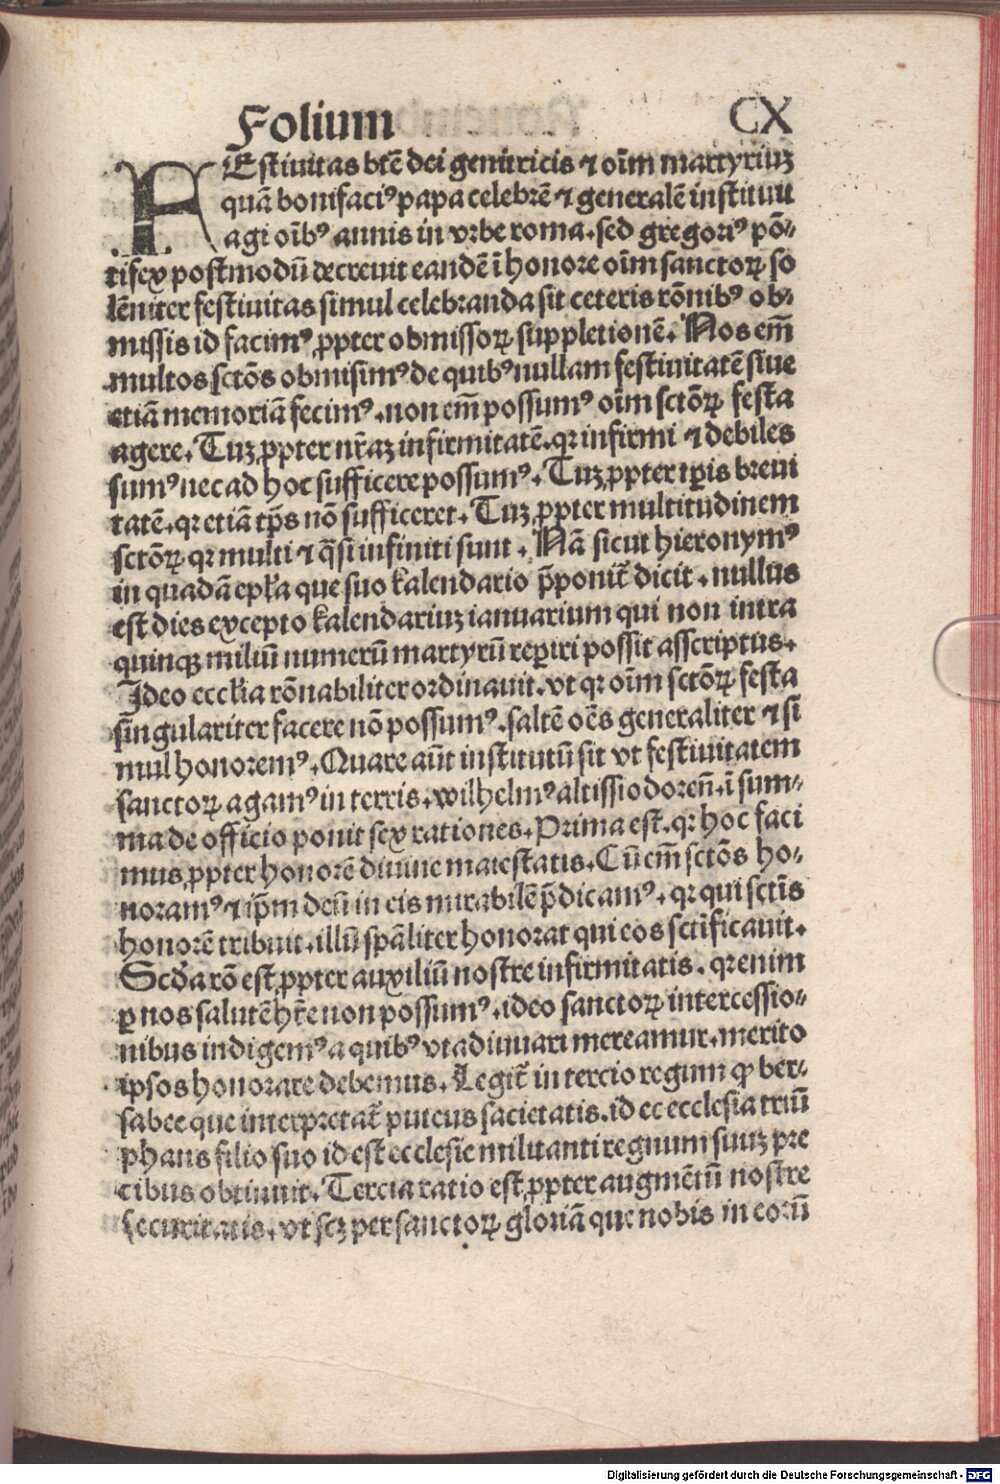 Folium CX
FEstiuitas btē dei genitricis ⁊ oīm martyriuꝫ
quā bonifaciꝰ papa celebrē ⁊ generalē instituit
agi oībꝰ annis in vrbe roma. sed gregoriꝰ pō⸗
tifex postmodū decreuit eandē ī honore oīm sanctoꝝ so
lēniter festiuitas simul celebranda sit ceteris rōnibꝰ ob⸗
missis id facimꝰ ꝓpter obmissoꝝ suppletionē. Nos em̄
multos sctōs obmisimꝰ de quibꝰ nullam festiuitatē siue
etiā memoriā fecimꝰ. non em̄ possumꝰ oīm sctōꝝ festa
agere. Tuꝫ ꝓpter nr̄aꝫ infirmitatē. qꝛ infirmi ⁊ debiles
sumꝰ nec ad hoc sufficere possumꝰ. Tuꝫ ꝓpter tꝑis breui
tatē. qꝛ etiā tp̄s nō sufficeret. Tuꝫ ꝓpter multitudinem
sctōꝝ qꝛ multi ⁊ q̄si infiniti sunt. Nā sicut hieronymꝰ
in quadā epl̄a que suo kalendario p̄ponit̄ dicit. nullus
est dies excepto kalendariuꝫ ianuarium qui non intra
quinqꝫ miliū numerū martyrū reꝑiri possit asscriptus.
Ideo eccl̄ia rōnabiliter ordinauit. vt qꝛ oīm sctōꝝ festa
singulariter facere nō possumꝰ. saltē oēs generaliter ⁊ si
mul honoremꝰ. Quare aūt institutū sit vt festiuitatem
sanctoꝝ agamꝰ in terris. wilhelmꝰ altissiodoreñ. ī sum⸗
ma de officio ponit sex rationes. Prima est. qꝛ hoc faci
mus ꝓpter honorē diuine maiestatis. Cū em̄ sctōs ho⸗
noramꝰ ⁊ ip̄m deū in eis mirabilē p̄dicamꝰ. qꝛ qui sctīs
honorē tribuit. illū spāliter honorat qui eos sctīficauit.
Scd̄a rō est ꝓpter auxiliū nostre infirmitatis. qꝛ enim
ꝑ nos salutē hr̄e non possumꝰ. ideo sanctoꝝ intercessio⸗
nibus indigemꝰ a quibꝰ vt adiuuari mereamur. merito
ipsos honorare debemus. Legit̄ in tercio regum ꝙ ber⸗
sabee que interpretat̄ puteus sacietatis. id ec ecclesia triū
phans filio suo id est ecclesie militanti regnum suuꝫ pre
cibus obtinuit. Tercia ratio est ꝓpter augmētū nostre
securitatis. vt scꝫ per sanctoꝝ gloriā que nobis in eoꝝ
Digitalisierung gefördert durch die Deutsche Forschungsgemeinschaft - DFG